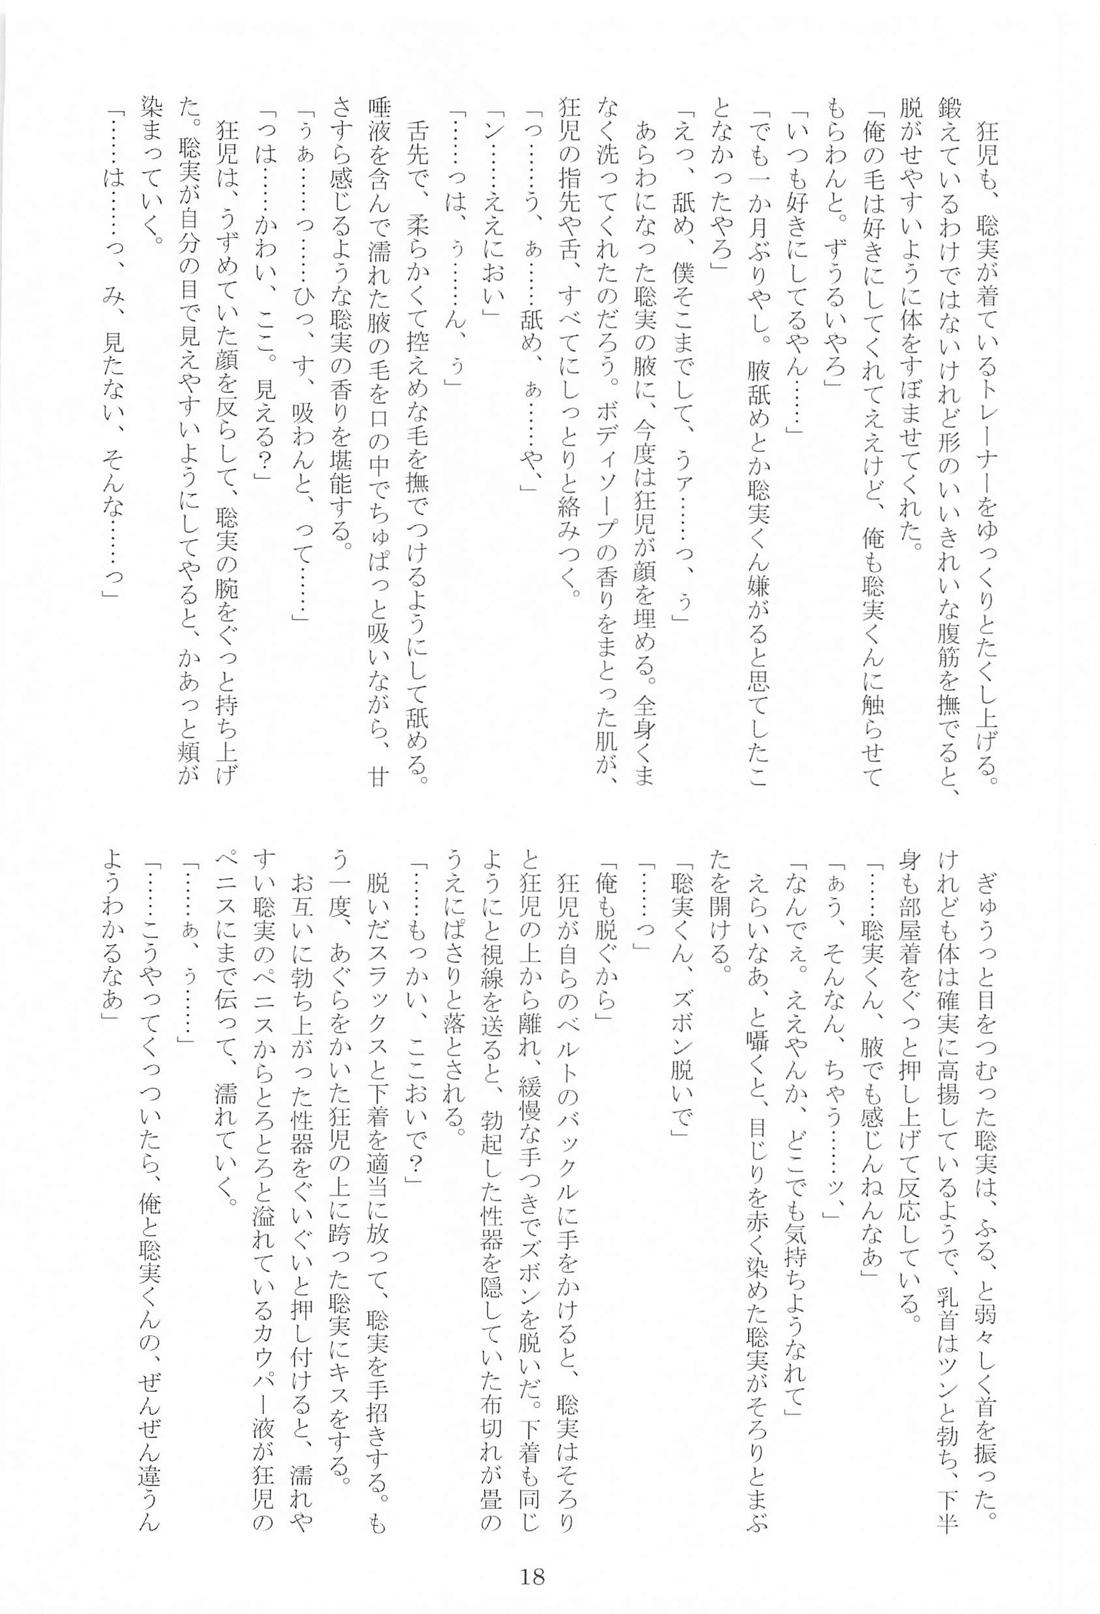 狂児も、聡実が着ているトレーナーをゆっくりとたくし上げる。
鍛えているわけではないけれど形のいいきれいな腹筋を撫でると、
脱がせやすいように体をすぼませてくれた。
「俺の毛は好きにしてくれてええけど、俺も聡実くんに触らせて
もらわんと。ずうるいやろ」
「いつも好きにしてるやん……」
「でも一か月ぶりやし。腋舐めとか聡実くん嫌がると思てしたこ
となかったやろ」
「えっ、舐め、僕そこまでして、うァ……っ、ぅ」
あらわになった聡実の腋に、今度は狂児が顔を埋める。全身くま
なく洗ってくれたのだろう。ボディソープの香りをまとった肌が、
狂児の指先や舌、すべてにしっとりと絡みつく。
「っ……う、ぁ……舐め、ぁ……や、」
「ン……ええにおい」
「……っは、ぅ……ん、ぅ」
舌先で、柔らかくて控えめな毛を撫でつけるようにして舐める。
唾液を含んで濡れた腋の毛を口の中でちゅぱっと吸いながら、甘
さすら感じるような聡実の香りを堪能する。
「ぅぁ……っ……ひっ、す、吸わんと、って……」
「っは……かわい、ここ。見える？」
狂児は、うずめていた顔を反らして、聡実の腕をぐっと持ち上げ
た。聡実が自分の目で見えやすいようにしてやると、かあっと頬が
染まっていく。
「……は……っ、み、見たない、そんな……っ」
ぎゅうっと目をつむった聡実は、ふる、と弱々しく首を振った。
けれども体は確実に高揚しているようで、乳首はツンと勃ち、下半
身も部屋着をぐっと押し上げて反応している。
「……聡実くん、腋でも感じんねんなあ」
「ぁう、そんなん、ちゃう……ッ、」
「なんでぇ。ええやんか、どこでも気持ちようなれて」
えらいなあ、と囁くと、目じりを赤く染めた聡実がそろりとまぶ
たを開ける。
「聡実くん、ズボン脱いで」
「……っ」
「俺も脱ぐから」
狂児が自らのベルトのバックルに手をかけると、聡実はそろり
と狂児の上から離れ、緩慢な手つきでズボンを脱いだ。下着も同じ
ようにと視線を送ると、勃起した性器を隠していた布切れが畳の
うえにぱさりと落とされる。
「……もっかい、ここおいで？」
脱いだスラックスと下着を適当に放って、聡実を手招きする。も
う一度、あぐらをかいた狂児の上に跨った聡実にキスをする。
お互いに勃ち上がった性器をぐいぐいと押し付けると、濡れや
すい聡実のペニスからとろとろと溢れているカウパー液が狂児の
ペニスにまで伝って、濡れていく。
「……ぁ、ぅ……」
「……こうやってくっついたら、俺と聡実くんの、ぜんぜん違うん
ようわかるなあ」
18